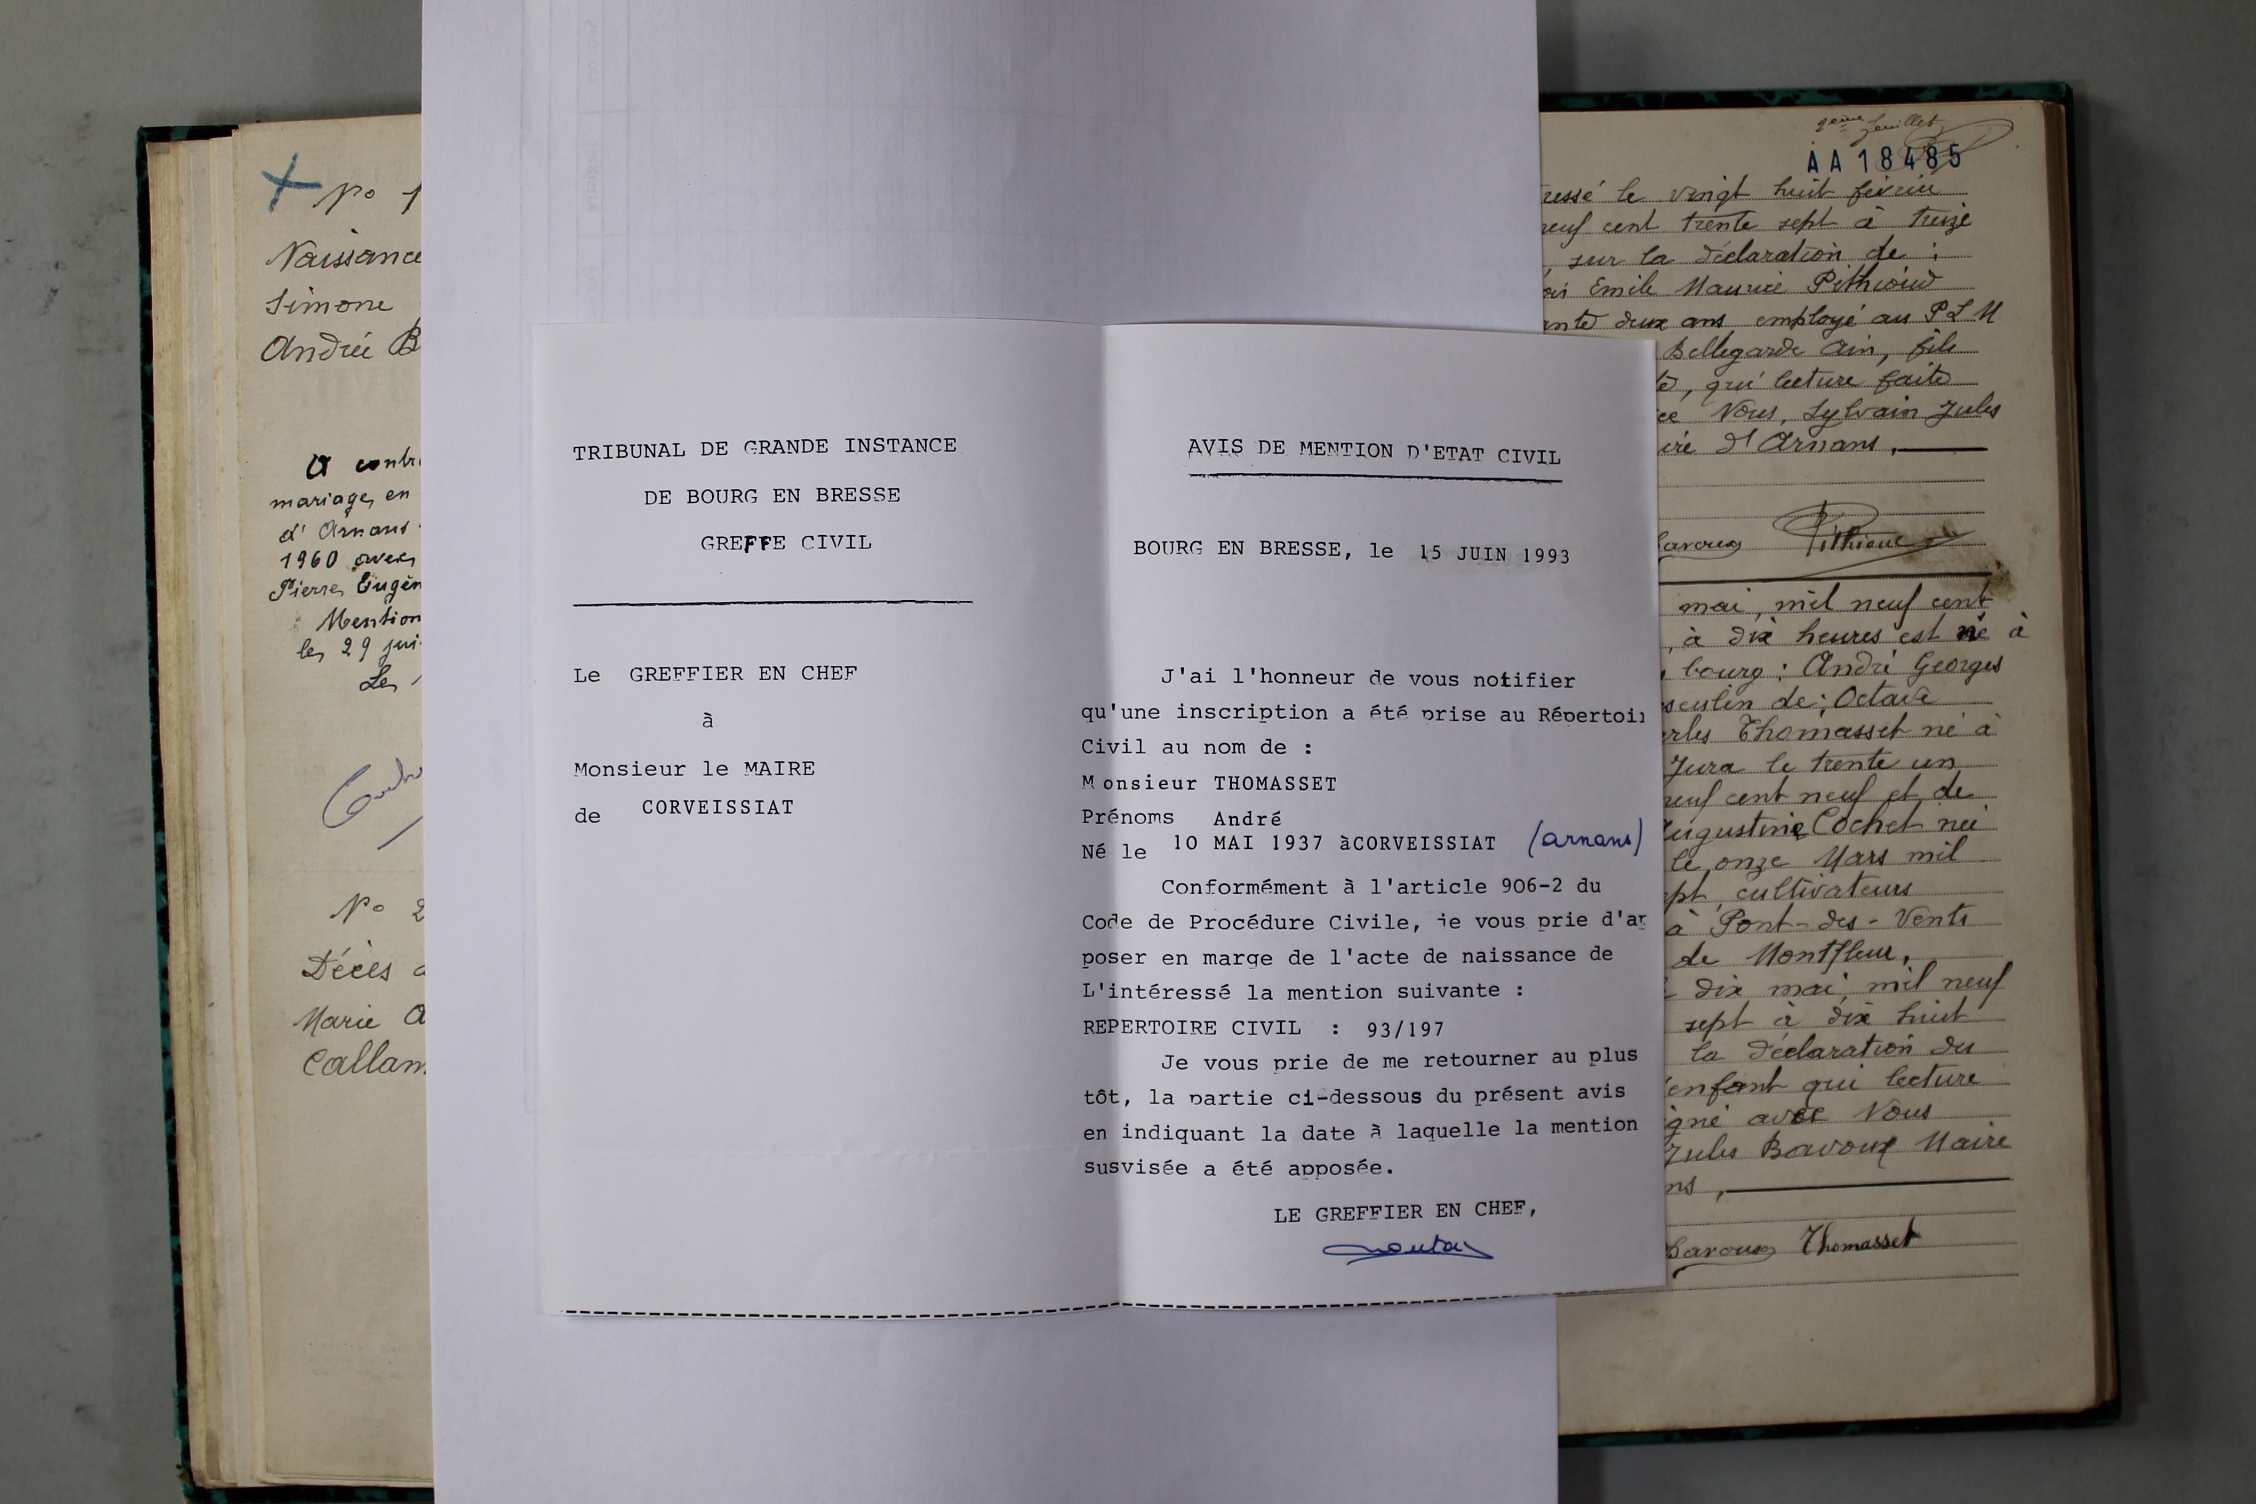 No 1
Naissance
Simone
Andrée B
A contr
mariage, en
d'Arnans
1960 avec
Pierre Eugèn
Mention
le, 29 jui
Le,
No 2
Décès d
Marie A
Callam
TRIBUNAL DE GRANDE INSTANCE
DE BOURG EN BRESSE
GREFFE CIVIL
Le GREFFIER EN CHEF
à
Monsieur le MAIRE
de CORVEISSIAT
AVIS DE MENTION D'ETAT CIVIL
BOURG EN BRESSE, le 15 JUIN 1993
J'ai l'honneur de vous notifier
qu'une inscription a été prise au Répertoir
Civil au nom de :
Monsieur THOMASSET
Prénoms André
Né le 10 MAI 1937 àCORVEISSIAT (arnans)
Conformément à l'article 906-2 du
Code de Procédure Civile, je vous prie d'ap
poser en marge de l'acte de naissance de
L'intéressé la mention suivante :
REPERTOIRE CIVIL : 93/197
Je vous prie de me retourner au plus
tôt, la partie ci-dessous du présent avis
en indiquant la date à laquelle la mention
susvisée a été apposée.
LE GREFFIER EN CHEF,
2eme feuillet
AA 18485
ressé le vingt huit février
neuf cent trente sept à treize
, sur la déclaration de :
Emile Maurice Pithioud
ante deux ans employé au PLM
Bellegarde Ain, fils
té, qui lecture faite
Nous, Sylvain Jules
ire d'Arnans,
Bavoux Pithioud
mai, mil neuf cent
, à dix heures est né à
bourg : André Georges
sculin de ; Octave
rles Thomasset né à
Jura le trente un
neuf cent neuf et de
Augustine Cochet née
le onze Mars mil
pt, cultivateurs
à Pont-des-Vents
de Montfleur,
dix mai, mil neuf
sept à dix huit
la déclaration du
enfant qui lecture
igné avec Nous
Jules Bavoux Maire
ns,
Bavoux Thomasset